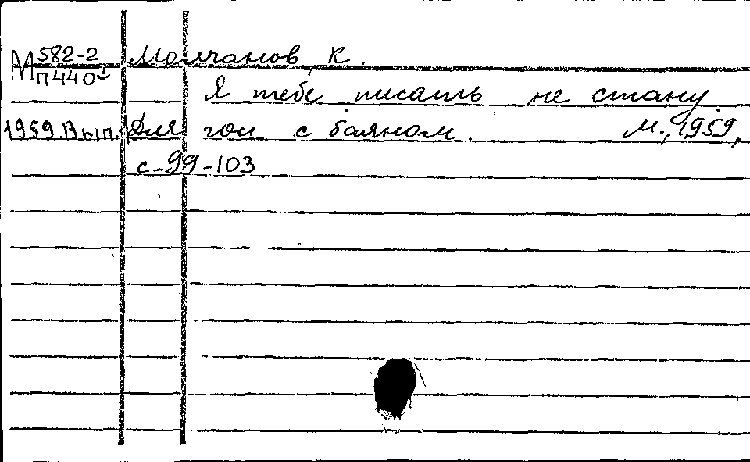 М 582-2 Молчанов, К.
П440
Я тебе писать не стану.
1959. Вып. Для гол с баяном. М., 1959,
с-99-103